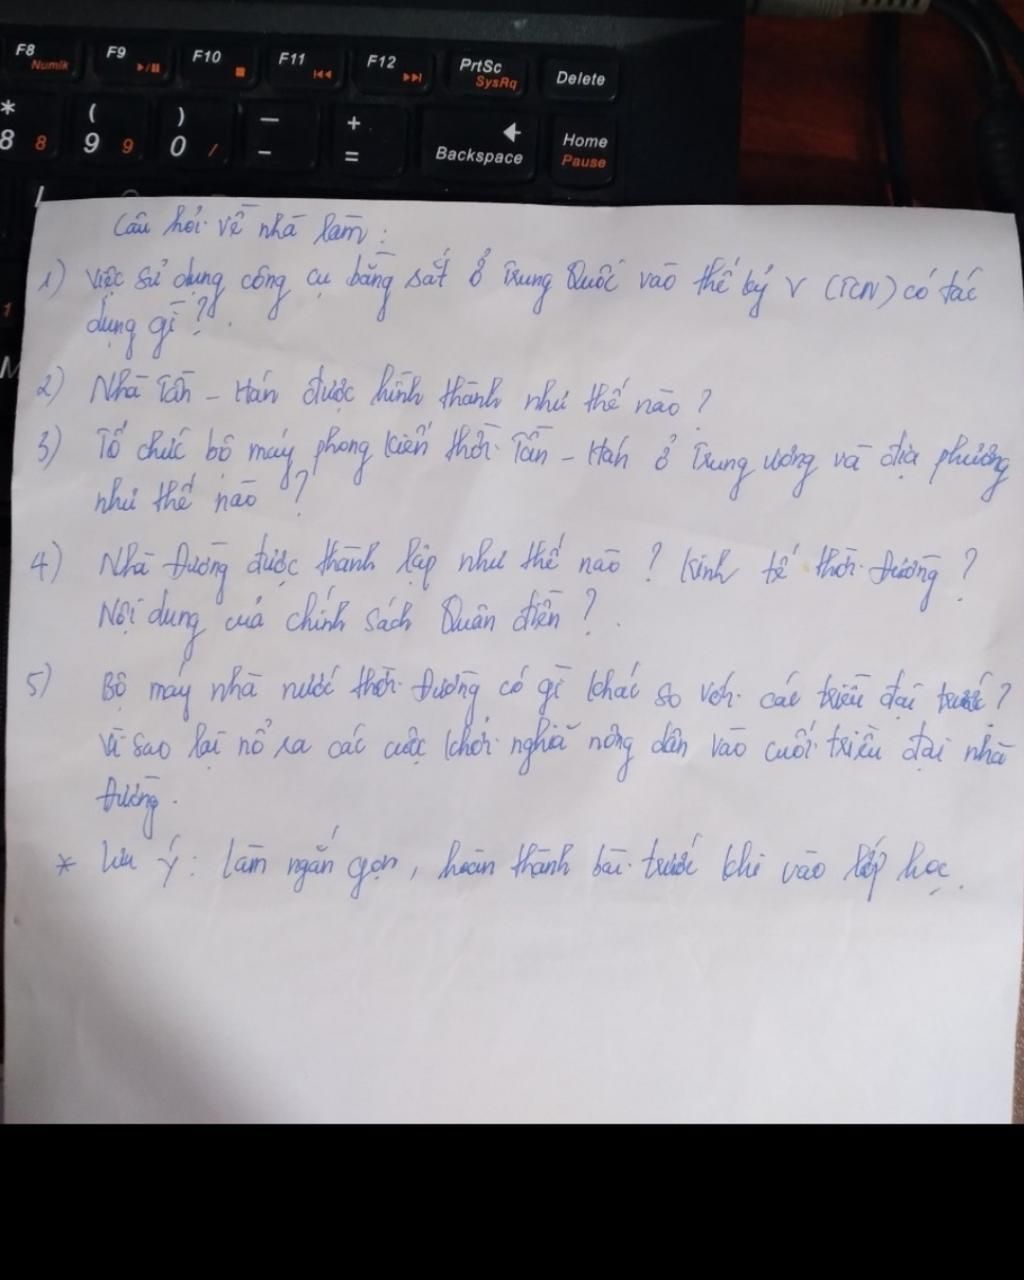 F8 F9 F10 F11 F12 PrtSc Delete
Numlk SysRq
* ( ) — + Home
8 8 9 9 0 / - = Backspace Pause
Câu hỏi về nhà làm:
1) Việc sử dụng công cụ bằng sắt ở Trung Quốc vào thế kỷ V (TCN) có tác
dụng gì?.
2) Nhà Tần - Hán được hình thành như thế nào?
3) Tổ chức bộ máy phong kiến thời Tần - Hán ở Trung ương và địa phương
như thế nào?
4) Nhà Đường được thành lập như thế nào? Kinh tế thời Đường?
Nội dung của chính sách Quân điền?.
5) Bộ máy nhà nước thời Đường có gì khác so với các triều đại trước?
Vì sao lại nổ ra các cuộc khởi nghĩa nông dân vào cuối triều đại nhà
Đường.
* Lưu ý: làm ngắn gọn, hoàn thành bài trước khi vào lớp học.